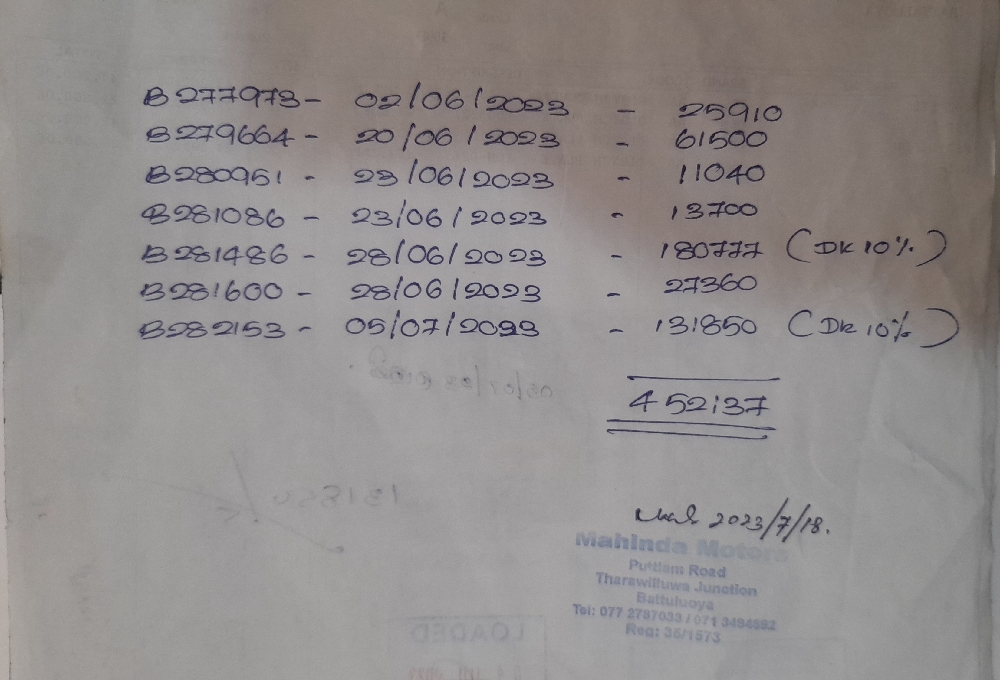 B277973 - 02/06/2023 - 25910
B279664 - 20/06/2023 - 61500
B280951 - 23/06/2023 - 11040
B281086 - 23/06/2023 - 13700
B281486 - 28/06/2023 - 180777 (DK 10%)
B281600 - 28/06/2023 - 27360
B282153 - 05/07/2023 - 131850 (DK 10%)
452137
131850
2023/7/18.
Mahinda Motors
Puttlam Road
Tharawilluwa Junction
Battuluoya
Tel: 077 2787033 / 071 3494592
Reg: 35/1573
LOADED